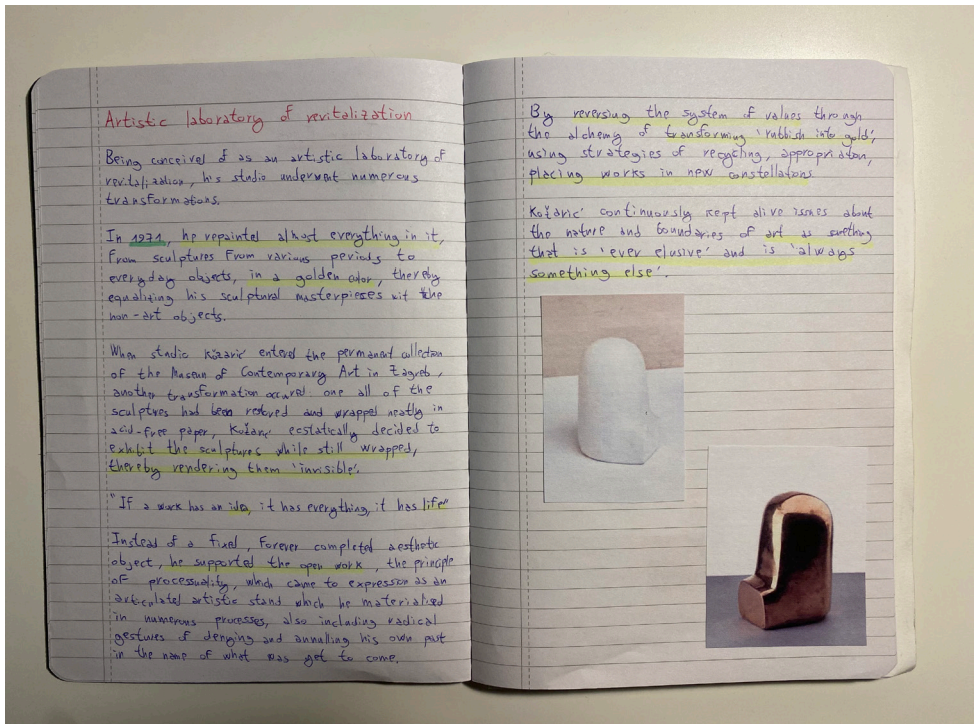 Artistic laboratory of revitalization
Being conceived of as an artistic laboratory of
revitalization, his studio underwent numerous
transformations.
In 1971, he repainted almost everything in it,
from sculptures from various periods to
everyday objects, in a golden color, thereby
equalizing his sculptural masterpieces wit the
non-art objects.
When studio Kožarić entered the permanent collection
of the Museum of Contemporary Art in Zagreb,
another transformation occured: one all of the
sculptures had been restored and wrapped neatly in
acid-free paper, Kožarić ecstatically decided to
exhibit the sculptures while still wrapped,
thereby rendering them 'invisible'.
"If a work has an idea, it has everything, it has life"
Instead of a fixed, forever completed aesthetic
object, he supported the open work, the principle
of processuality, which came to expression as an
articulated artistic stand which he materialised
in numerous processes, also including radical
gestures of denying and annulling his own past
in the name of what was yet to come.
By reversing the system of values through
the alchemy of transforming 'rubbish into gold',
using strategies of recycling, appropriation,
placing works in new constellations.
Kožarić continuously kept alive issues about
the nature and boundaries of art as something
that is 'ever elusive' and is 'always
something else'.